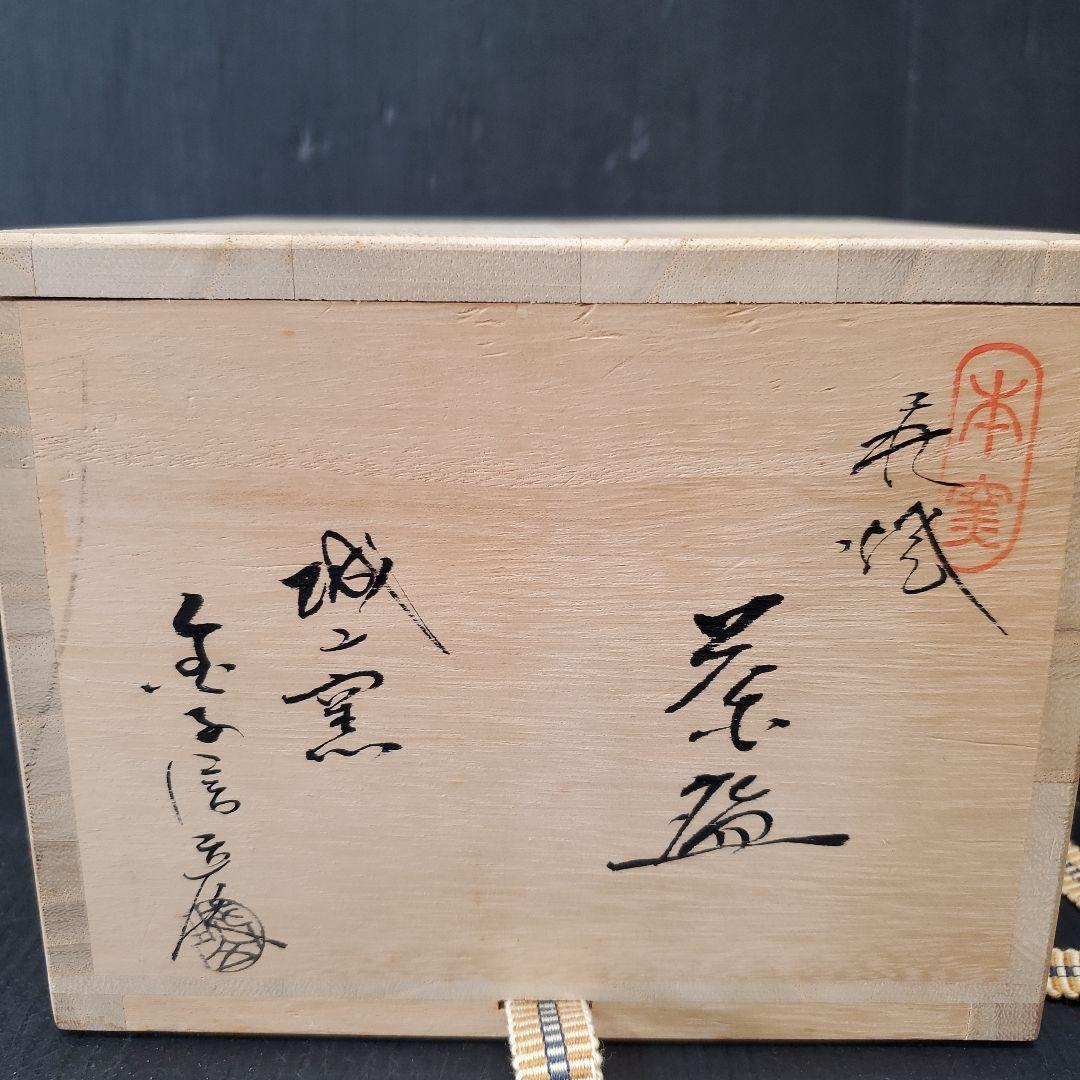 本窯
萩焼
茶盌
城山窯
金子信彦